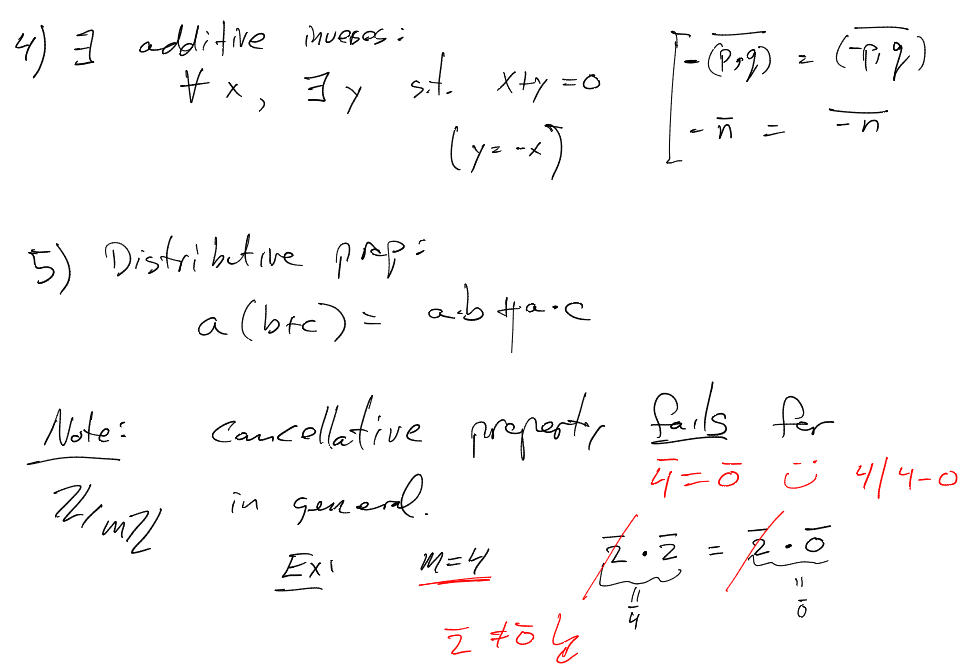 4) ∃ additive inveses: [ -\overline{(p,q)} = \overline{(-p,q)}
∀ x, ∃ y s.t. x+y=0
(y=-x) - n̄ = \overline{-n}
5) Distributive prop:
a(b+c) = a·b + a·c
Note: cancellative property fails for
4̄ = 0̄ ∵ 4 | 4-0
ℤ/mℤ in general.
Ex: m=4 2̄·2̄ = 2̄·0̄
= 4̄ = 0̄
2̄ ≠ 0̄ ↯